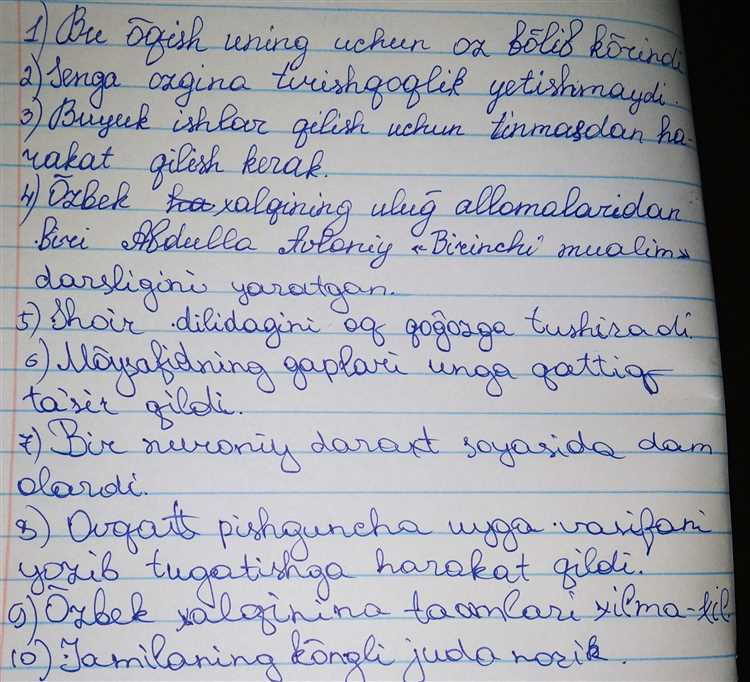 1) Bu ōqish uning uchun oz bōlib kōrindi
2) Senga ozgina tirishqoqlik yetishmaydi.
3) Buyuk ishlar qilish uchun tinmasdan ha-
rakat qilish kerak.
4) Ōzbek xalqining uluğ allomalaridan
biri Abdulla Avloniy «Birinchi mualim»
darsligini yaratgan.
5) Shoir dilidagini oq qoğozga tushiradi
6) Mōysafidning gaplari unga qattiq
ta'sir qildi.
7) Bir nuroniy daraxt soyasida dam
olardi.
8) Ovqatt pishguncha uyga vazifani
yozib tugatishga harakat qildi.
9) Ōzbek xalqinina taomlari xilma-xil
10) Jamilaning kōngli juda nozik.